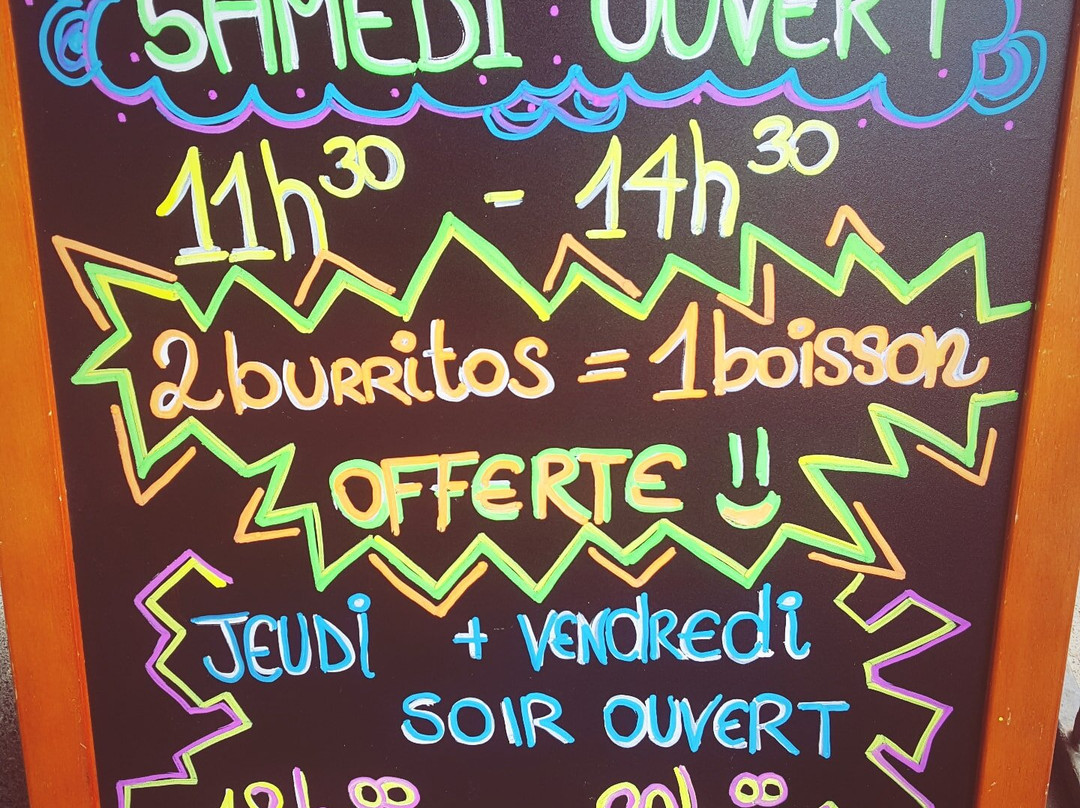 SAMEDI OUVERT
11h30 - 14h30
2 burritos = 1 boisson
OFFERTE
JEUDI + VENDREDI
SOIR OUVERT